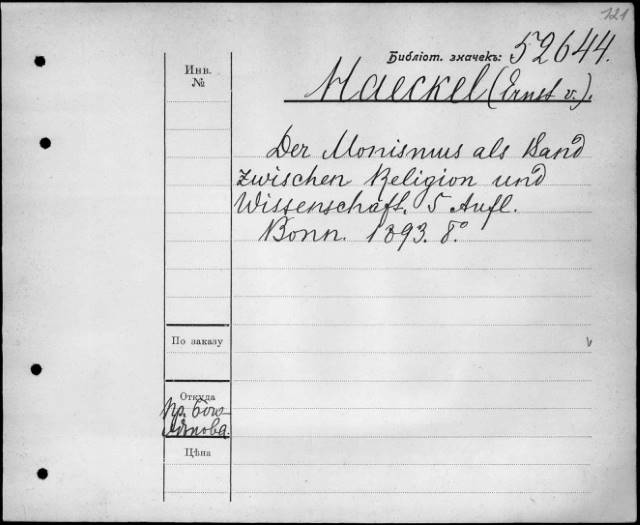 121
Библіот. значекъ: 52644.
Инв.
№
Haeckel (Ernst v.).
Der Monismus als Band
zwischen Religion und
Wissenschaft. 5 Aufl.
Bonn. 1893. 8°.
По заказу
v
Откуда
пр. Бого
Цѣна